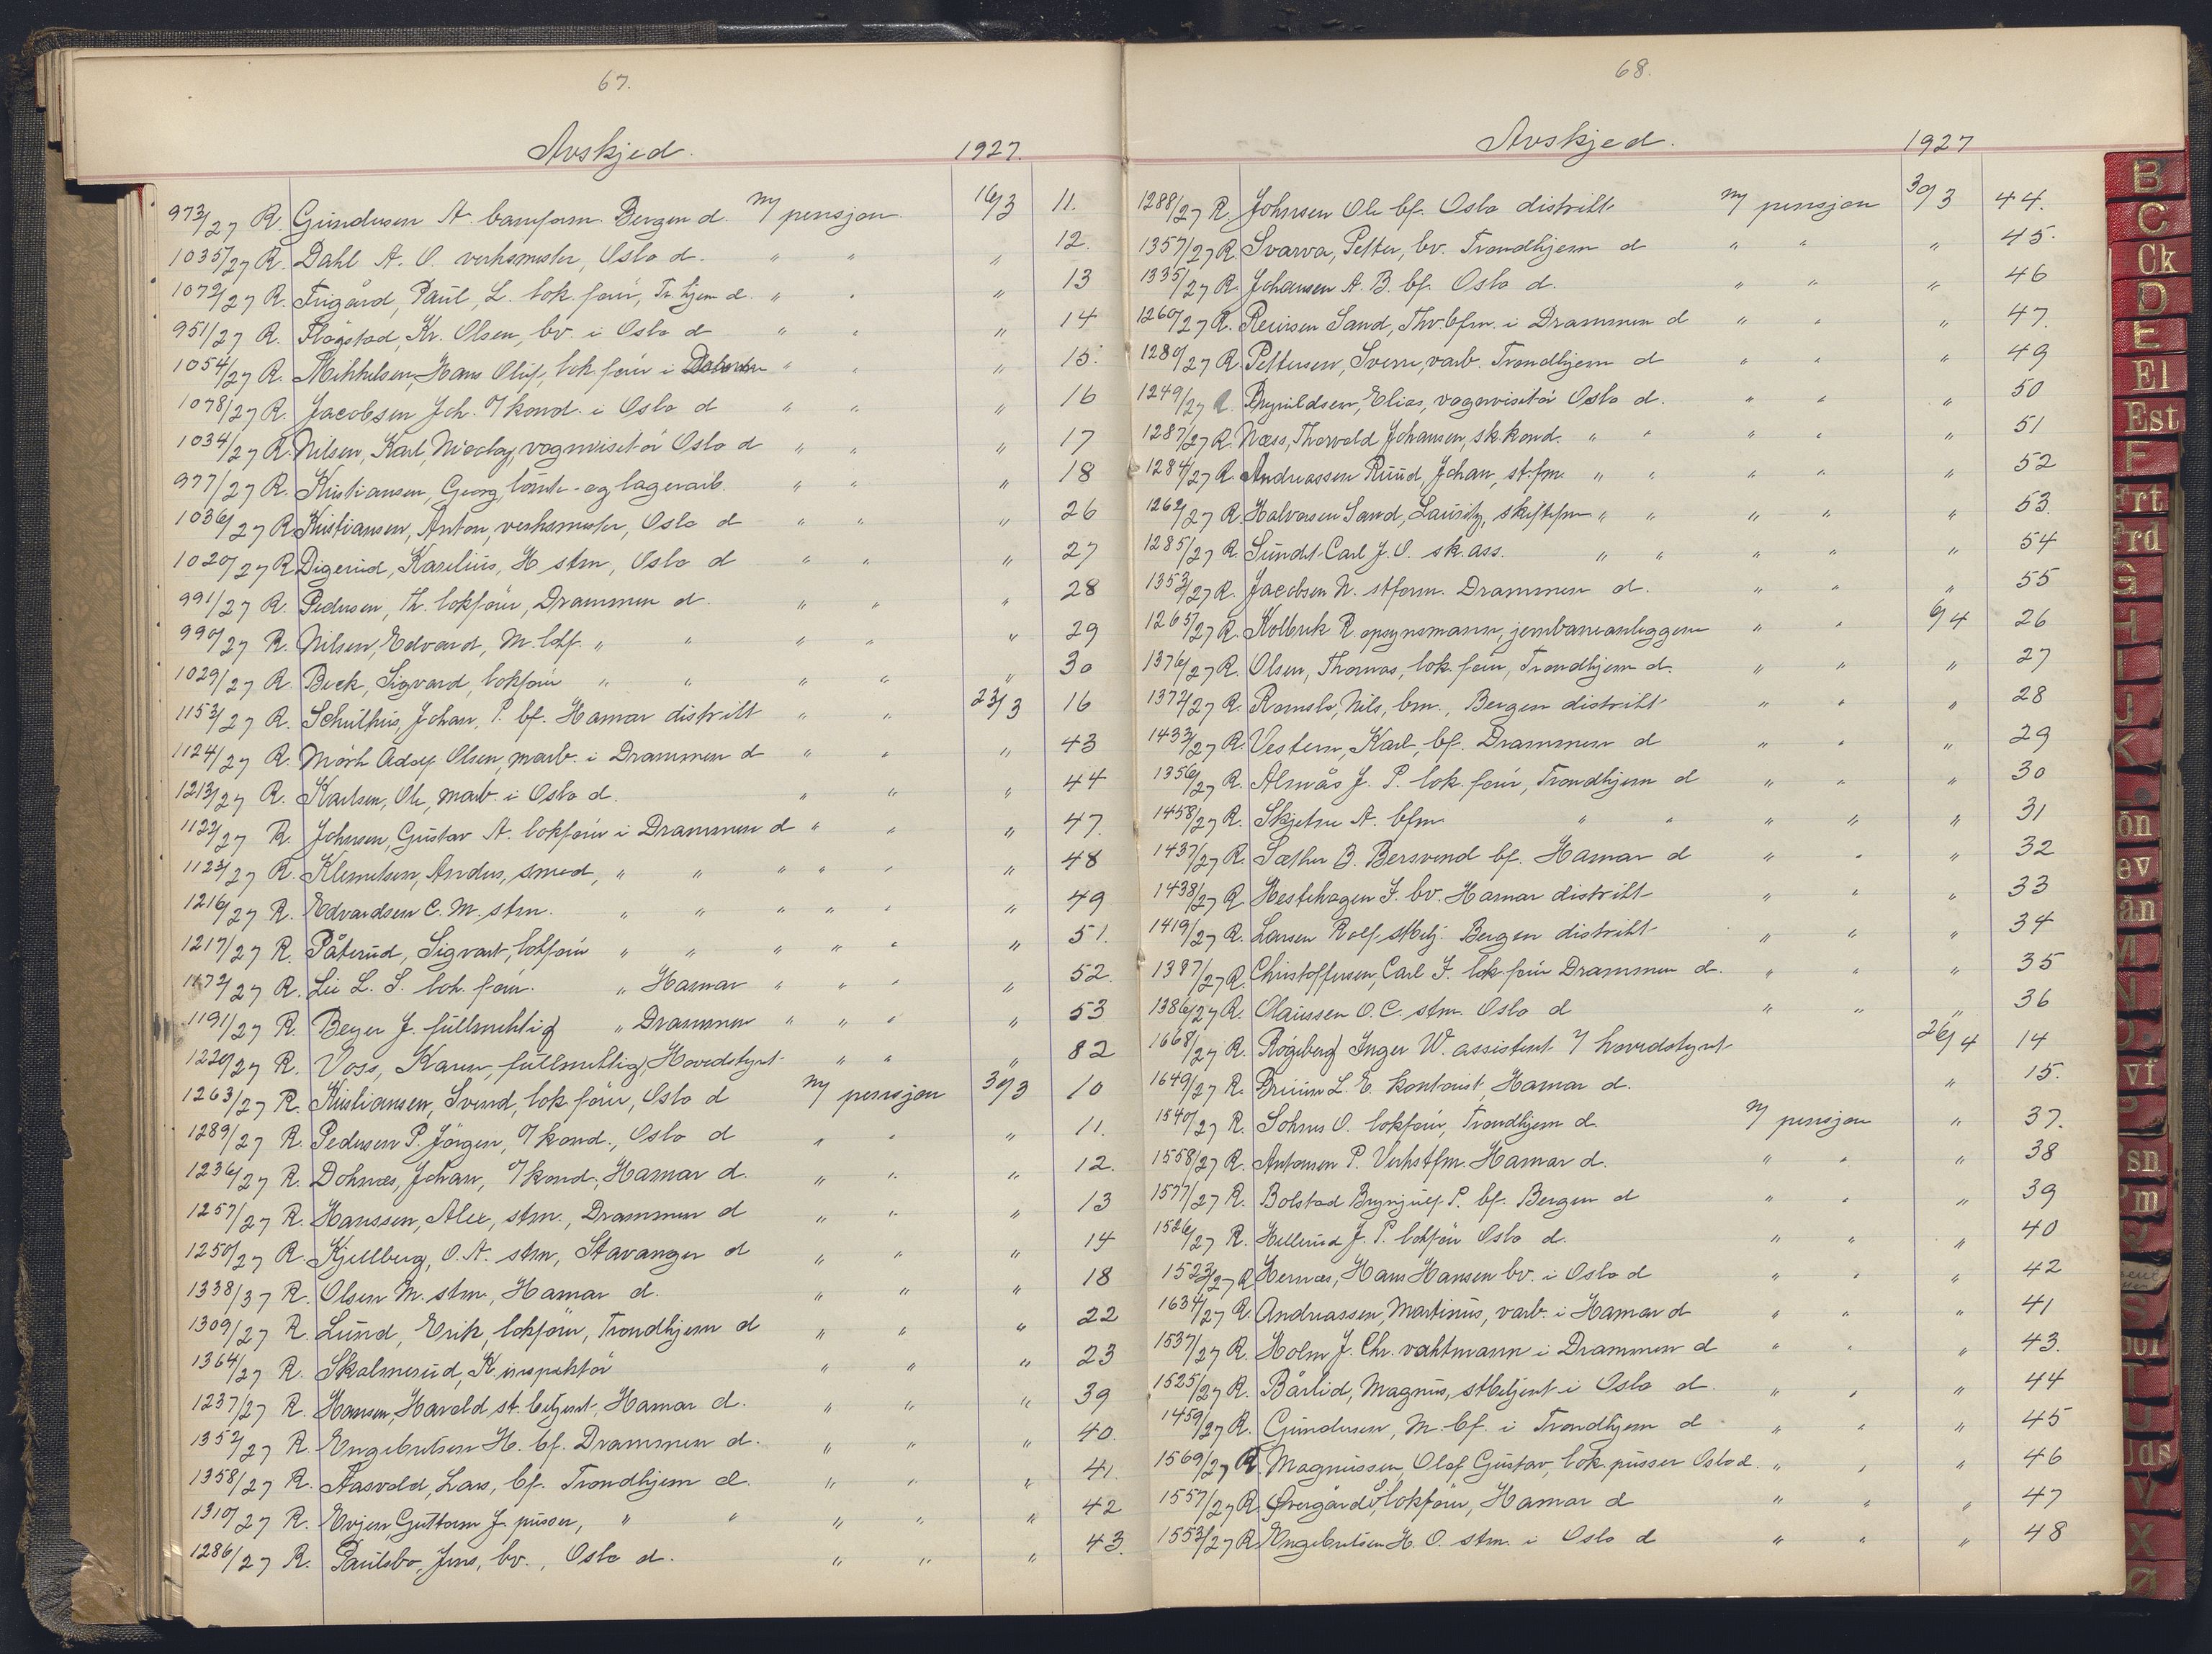 67.
Avskjed. 1927.
973/27 R. Gundersen A. baneform. Bergen d. m/ pensjon. 16/3 11.
1035/27 R. Dahl A. O. verksmester, Oslo d. " " " 12.
1072/27 R. Frigård, Paul, L. lok.före, Tr.hjem d. " " " 13
951/27 R. Flågstad, Kr. Olsen, bv. i Oslo d " " " 14
1054/27 R. Mikkelsen, Hans Oluf, lok.före i " " " 15.
1078/27 R. Jacobsen Joh. o/kond. i Oslo d " " " 16
1034/27 R. Nilsen, Karl, Nicolay, vognvisitör Oslo d " " " 17
977/27 R. Kristiansen, Georg, tomte- og lagerarb. " " " 18
1036/27 R. Kristiansen, Anton, verksmester, Oslo d " " " 26
1020/27 R. Digerud, Karelius, H. stm, Oslo d " " " 27
991/27 R. Pedersen, Th. lokförer, Drammen d. " " " 28
990/27 R. Nilsen, Edvard, M. lokf. " " " " " 29
1029/27 R. Beck, Sigvard, lokförer " " " " " 30
1153/27 R. Schulthis, Johan, P. bf. Hamar distrikt " " 23/3 16
1124/27 R. Mörk Adolf Olsen, marb. i Drammen d " " " 43
1213/27 R. Karlsen, Ole, marb. i Oslo d. " " " 44
1122/27 R. Johnsen, Gustav A. lokförer i Drammen d " " " 47.
1123/27 R. Klemetsen, Anders, smed, " " " " " " 48
1216/27 R. Edvardsen C. M. stm. " " " " " " 49
1217/27 R. Påterud, Sigvart, lokförer " " " " " " 51.
1172/27 R. Lie L. S. lok.förer. " Hamar " " " " 52.
1191/27 R. Beyer J. fullmektig " Drammen " " " " 53
1220/27 R. Voss, Karen, fullmektig, Hovedstyret " " " 82
1263/27 R. Kristiansen, Svend, lok.förer, Oslo d m/ pensjon 30/3 10
1289/27 R. Pedersen P. Jörgen, o/kond., Oslo d " " " 11.
1236/27 R. Dohnæs, Johan, o/kond., Hamar d. " " " 12.
1257/27 R. Hanssen, Alex, stm., Drammen d " " " 13
1250/27 R. Kjellberg, O. A. stm, Stavanger d " " " 14
1338/37 R. Olsen M. stm., Hamar d. " " " 18
1309/27 R. Lund, Erik, lokförer, Trondhjem d " " " 22
1364/27 R. Skalmerud, K. inspektör " " " 23
1237/27 R. Hansen, Harald st.betjent, Hamar d. " " " 39
1352/27 R. Engebretsen H. bf. Drammen d. " " " 40.
1358/27 R. Aasvold, Lars, bf. Trondhjem d. " " " 41.
1310/27 R. Evjen, Guttorm J. pusser, " " " " " 42
1286/27 R. Paulsbo, Jens, bv., Oslo d. " " " 43.
68.
Avskjed. 1927
1288/27 R. Johnsen Ole bf. Oslo distrikt m/ pensjon 30/3 44.
1357/27 R. Svarva, Petter, bv. Trondhjem d " " " 45.
1335/27 R. Johansen A. B. bf. Oslo d. " " " 46
1260/27 R. Reiersen Sand, Thv. bfm. i Drammen d " " " 47.
1280/27 R. Pettersen, Sverre, varb. Trondhjem d " " " 49
1249/27 R. Brynildsen, Elias, vognvisitör Oslo d. " " " 50
1287/27 R. Næss, Thorvald Johansen, sk.kond. " " " " " 51
1284/27 R. Andreassen Ruud, Johan, st.fm. " " " " " 52
1262/27 R. Halvorsen Sand, Lauritz, skiftefm " " " " " 53.
1285/27 R. Sundt Carl J. O. sk.ass. " " " " " 54
1353/27 R. Jacobsen N. stform. Drammen d. " " " 55
1265/27 R. Kolbrek R. opsynsmann, jernbaneanleggene " " 6/4 26
1376/27 R. Olsen, Thomas, lok.förer, Trondhjem d. " " " 27
1372/27 R. Romslo, Nils, bm., Bergen distrikt " " " 28
1433/27 R. Vestern, Karl, bf. Drammen d " " " 29
1356/27 R. Almås J. P. lok.förer, Trondhjem d " " " 30
1458/27 R. Skjetne A. bfm " " " " " 31
1437/27 R. Sæther B. Bersvend bf. Hamar d " " " 32
1438/27 R. Hestehagen J. bv. Hamar distrikt " " " 33
1419/27 R. Larsen Rolf stbetj. Bergen distrikt " " " 34
1387/27 R. Christoffersen, Carl F. lok.förer Drammen d. " " " 35
1386/27 R. Olaussen O. C. stm. Oslo d " " " 36
1668/27 R. Rogeberg Inger W. assistent i/ hovedstyret 26/4 14
1649/27 R. Bruun L. E. kontorist, Hamar d. " 15.
1540/27 R. Sohnes O. lokförer, Trondhjem d. m/ pensjon " 37.
1558/27 R. Antonsen P. Verkstfm. Hamar d. " " " 38
1577/27 R. Bolstad Brynjulf P. bf. Bergen d " " " 39
1526/27 R. Hellerud J. P. lokförer Oslo d. " " " 40
1523/27 R. Hernæs, Hans Hansen bv. i Oslo d " " " 42
1634/27 R. Andreassen, Martinus, varb. i Hamar d " " " 41
1537/27 R. Holm J. Chr. vaktmann i Drammen d " " " 43.
1525/27 R. Bårlid, Magnus, stbetjent i Oslo d. " " " 44
1459/27 R. Gundersen, M. bf. i Trondhjem d " " " 45
1569/27 R. Magnussen, Olaf Gustav, lok.pusser Oslo d. " " " 46
1557/27 R. Övergård O., lokförer, Hamar d " " " 47
1553/27 R. Engebretsen H. O. stm. i Oslo d " " " 48
B
C
Ck
D
E
El
Est
F
Frt
Frd
G
H
I
J
K
N
S
T
U
V
X
Ø